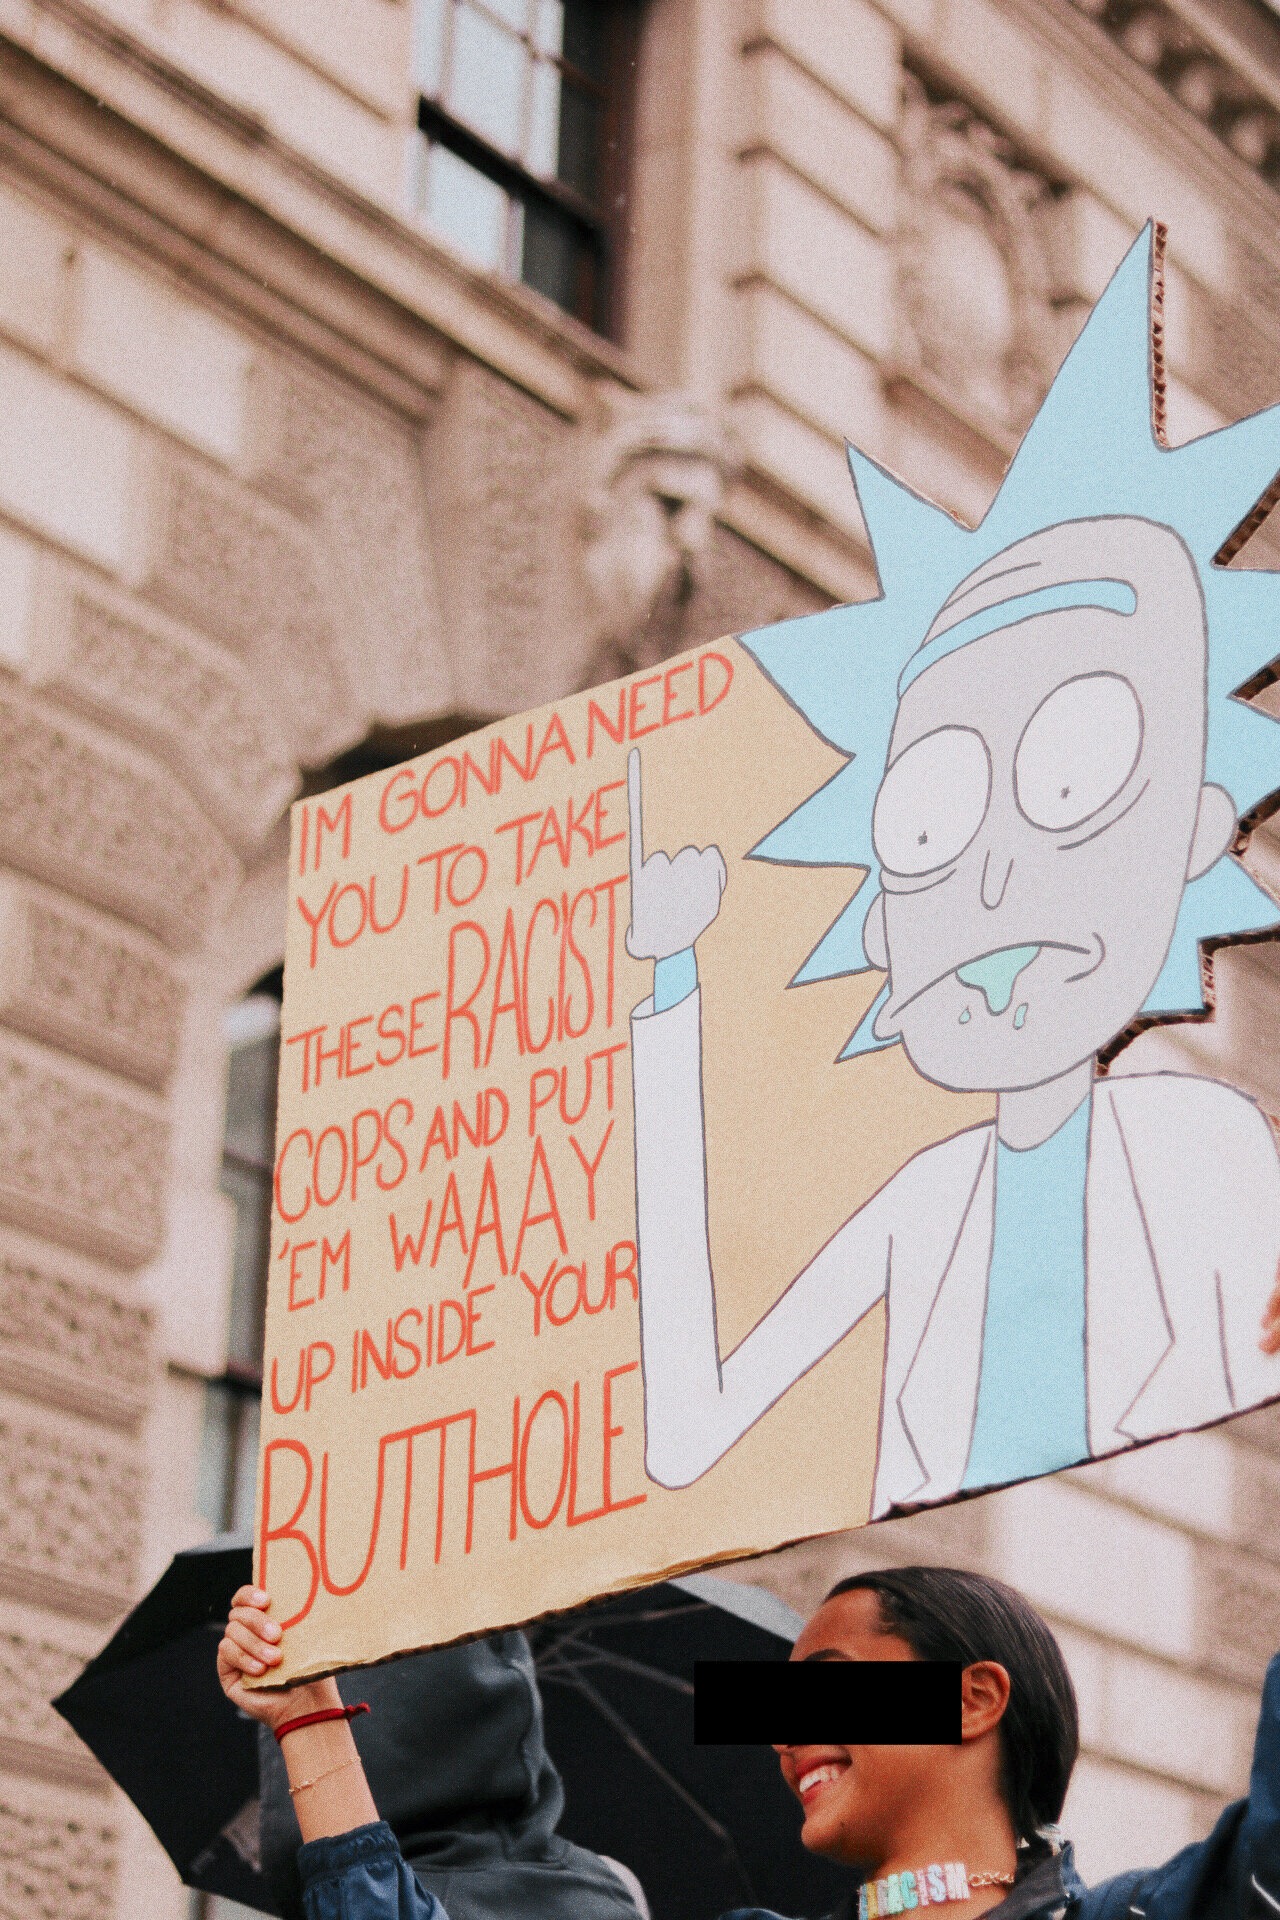 IM GONNA NEED
YOU TO TAKE
THESE RACIST
COPS AND PUT
'EM WAAAY
UP INSIDE YOUR
BUTTHOLE